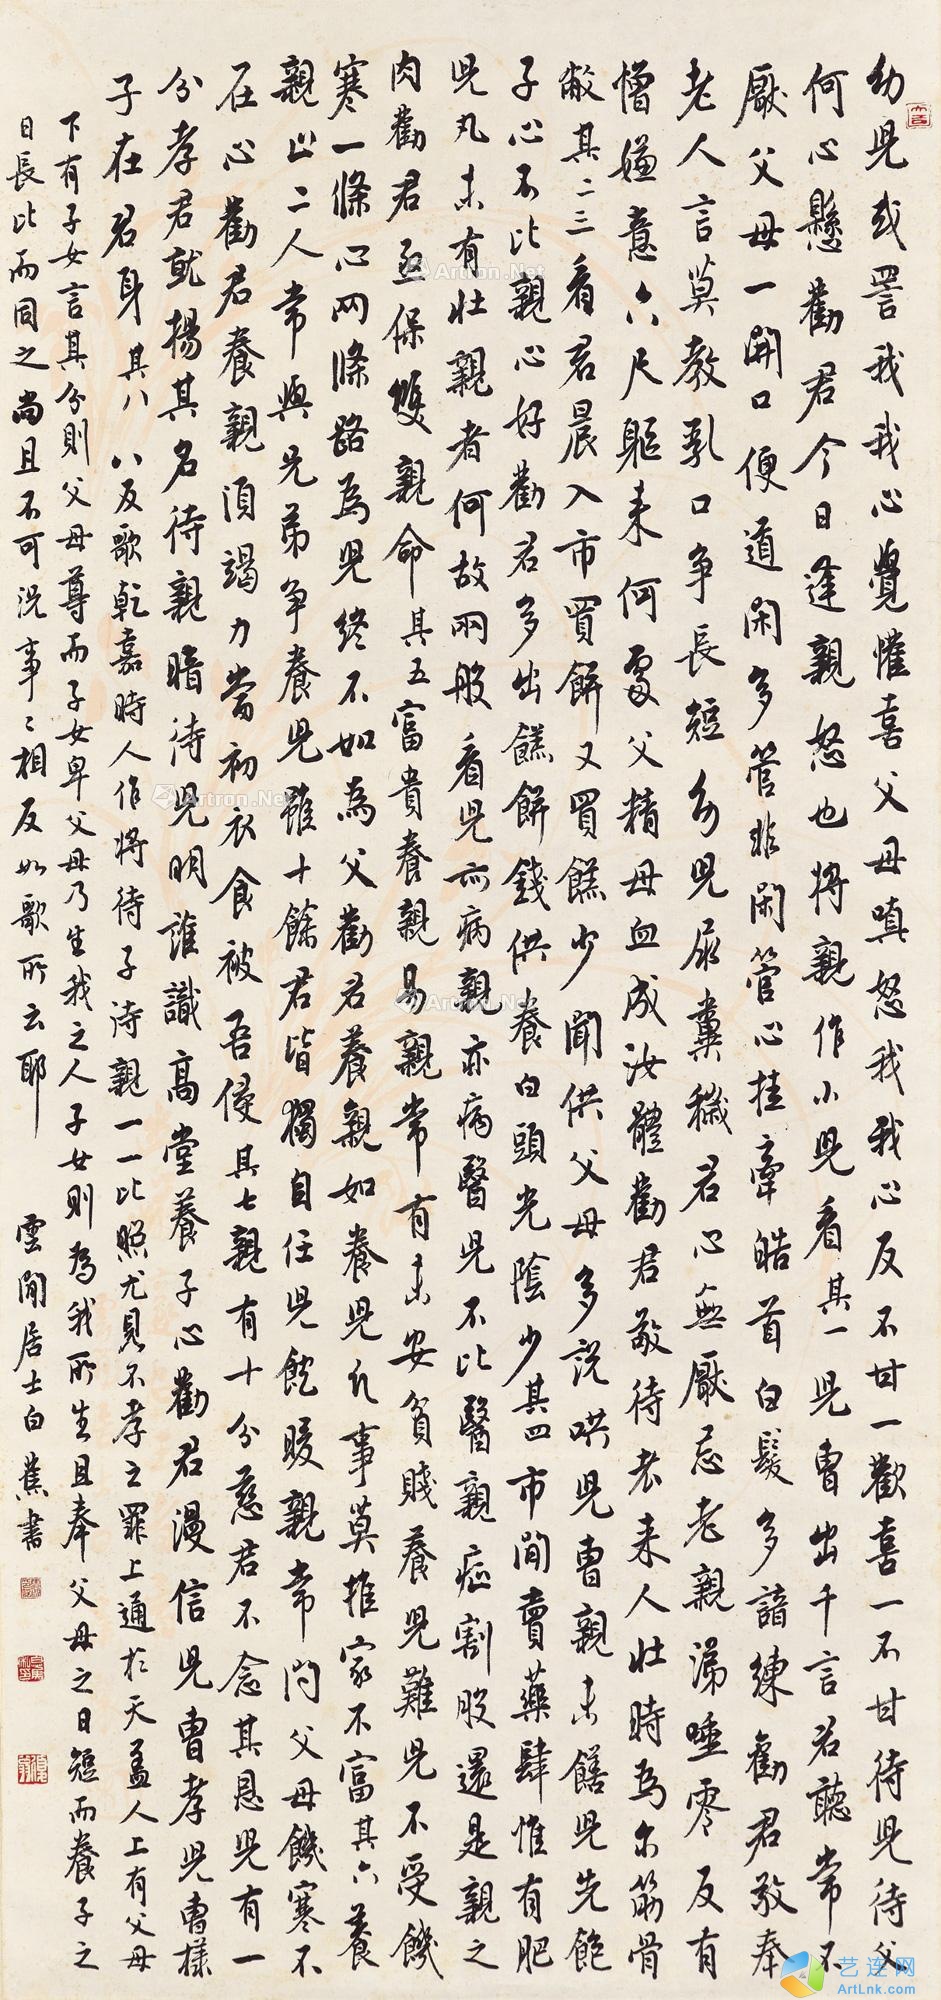 幼兒或詈我我心覺懽喜父母嗔怒我我心反不甘一歡喜一不甘待兒待父
何心懸勸君今日逢親怒也將親作小兒看其一兒曹出千言君聽常不
厭父母一開口便道閑多管非閑管心挂牽皓首白髮多諳練勸君敬奉
老人言莫教乳口爭長短幼兒尿糞穢君心無厭忌老親涕唾零反有
憎嫌意六尺軀來何處父精母血成汝體勸君敬待老來人壯時為尔筋骨
敝其二三看君晨入市買餅又買餻少聞供父母多說哄兒曹親未饍兒先飽
子心不比親心好勸君多出餻餅錢供養白頭光陰少其四市間賣藥肆惟有肥
兒丸未有壯親者何故兩般看兒亦病親亦病醫兒不比醫親症割股還是親之
肉勸君亟保雙親命其五富貴養親易親常有未安貧賤養兒難兒不受饑
寒一條心兩條路為兒終不如為父勸君養親如養兒凡事莫推家不富其六養
親止二人常與兄弟爭養兒雖十餘君皆獨自任兒飽暖親常問父母饑寒不
在心勸君養親須竭力當初衣食被吾侵其七親有十分慈君不念其恩兒有一
分孝君就揚其名待親暗待兒明誰識高堂養子心勸君漫信兒曹孝兒曹樣
子在君身其八八反歌乾嘉時人作將待子待親一一比照尤見不孝之罪上通於天蓋人上有父母
下有子女言其分則父母尊而子女卑父母乃生我之人子女則為我所生且奉父母之日短而養子之
日長比而同之尚且不可況事〻相反如歌所云耶 雲間居士白蕉書
Artron.Net
Artron.Net
Artron.Net
Artron.Net
Artron.Net
艺连网
ArtLnk.com